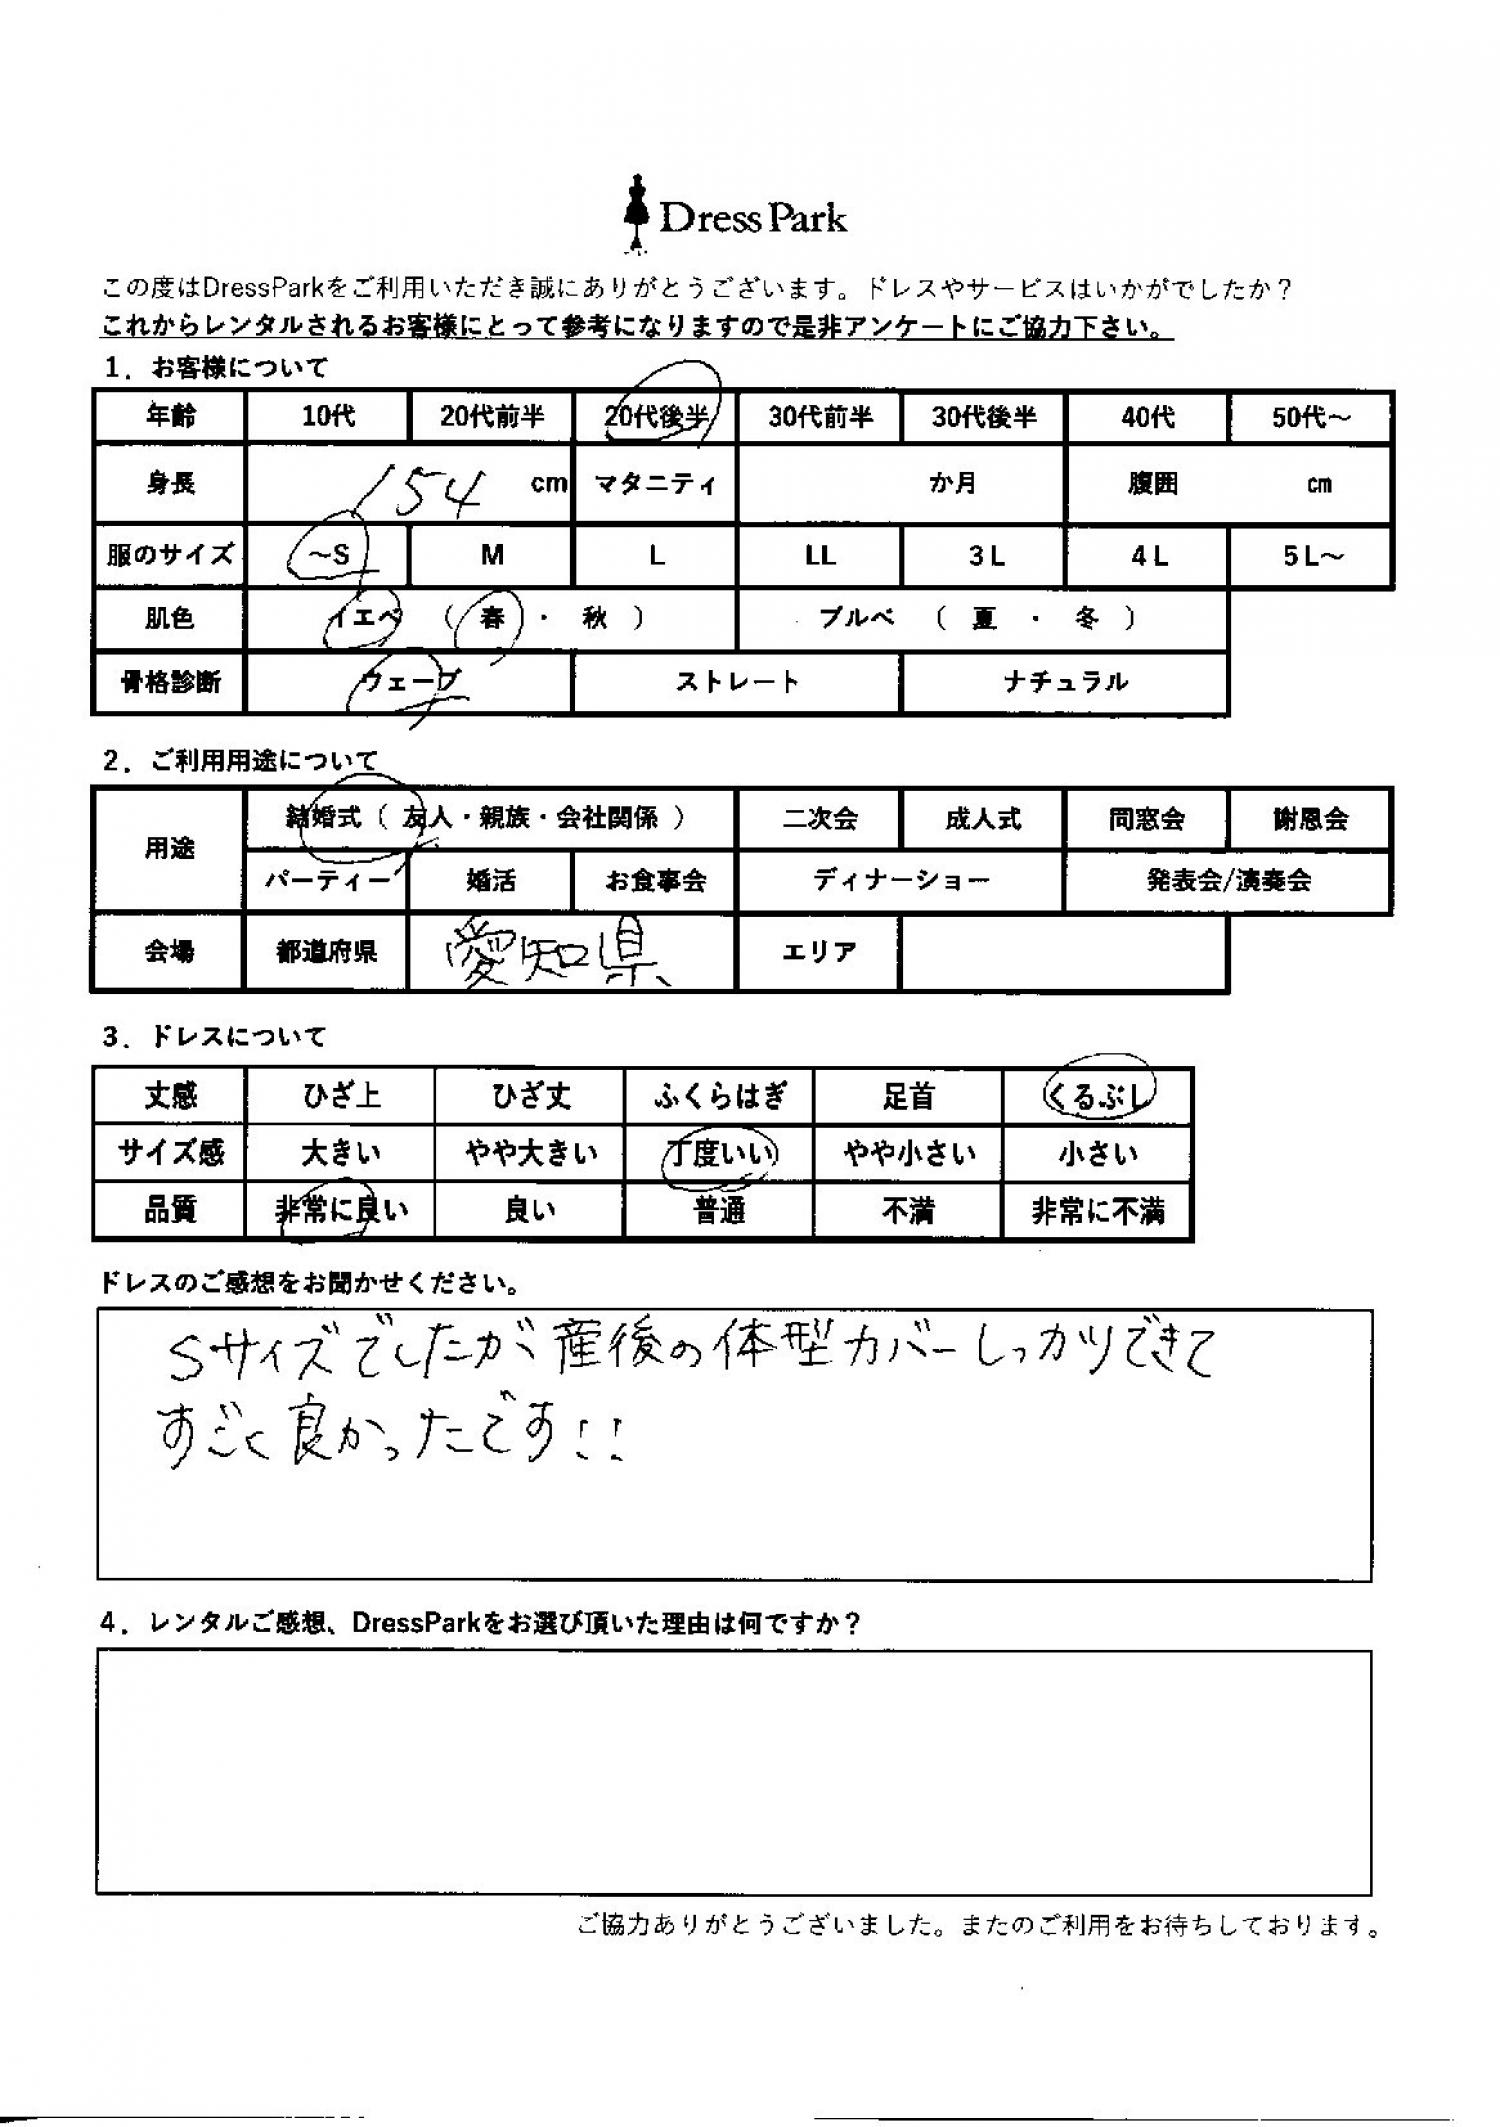 Dress Park
この度はDressParkをご利用いただき誠にありがとうございます。ドレスやサービスはいかがでしたか？
これからレンタルされるお客様にとって参考になりますので是非アンケートにご協力下さい。
1．お客様について
年齢 10代 20代前半 20代後半 30代前半 30代後半 40代 50代～
身長 154 cm マタニティ か月 腹囲 cm
服のサイズ ～S M L LL 3L 4L 5L～
肌色 イエベ （ 春 ・ 秋 ） ブルベ （ 夏 ・ 冬 ）
骨格診断 ウェーブ ストレート ナチュラル
2．ご利用用途について
用途 結婚式（ 友人・親族・会社関係 ） 二次会 成人式 同窓会 謝恩会
パーティー 婚活 お食事会 ディナーショー 発表会/演奏会
会場 都道府県 愛知県 エリア
3．ドレスについて
丈感 ひざ上 ひざ丈 ふくらはぎ 足首 くるぶし
サイズ感 大きい やや大きい 丁度いい やや小さい 小さい
品質 非常に良い 良い 普通 不満 非常に不満
ドレスのご感想をお聞かせください。
Sサイズでしたが産後の体型カバーしっかりできて
すごく良かったです!!
4．レンタルご感想、DressParkをお選び頂いた理由は何ですか？
ご協力ありがとうございました。またのご利用をお待ちしております。